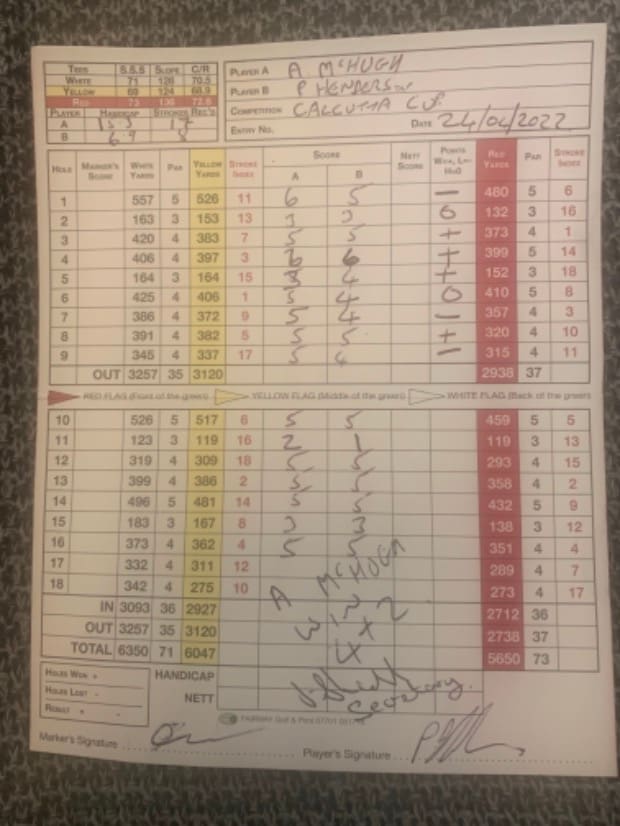 TEES S.S.S SLOPE C/R
WHITE 71 126 70.5
YELLOW 69 124 68.9
RED 73 136 72.8
PLAYER HANDICAP STROKES REC'D
A 15.3 17
B 6.9 8
PLAYER A A McHUGH
PLAYER B P HENDERSON
COMPETITION CALCUTTA CUP
ENTRY NO. DATE 24/04/2022
HOLE MARKER'S SCORE WHITE YARDS PAR YELLOW YARDS STROKE INDEX SCORE A B NETT SCORE POINTS WON, L— H=O RED YARDS PAR STROKE INDEX
1 557 5 526 11 6 5 — 480 5 6
2 163 3 153 13 3 3 0 132 3 16
3 420 4 383 7 5 5 + 373 4 1
4 406 4 397 3 6 6 + 399 5 14
5 164 3 164 15 4 + 152 3 18
6 425 4 406 1 5 4 0 410 5 8
7 386 4 372 9 5 4 — 357 4 3
8 391 4 382 5 5 5 + 320 4 10
9 345 4 337 17 5 4 — 315 4 11
OUT 3257 35 3120 2938 37
RED FLAG (Front of the green) YELLOW FLAG (Middle of the green) WHITE FLAG (Back of the green)
10 526 5 517 6 5 5 459 5 5
11 123 3 119 16 2 1 119 3 13
12 319 4 309 18 5 5 293 4 15
13 399 4 386 2 5 5 358 4 2
14 496 5 481 14 5 5 432 5 9
15 183 3 167 8 3 3 138 3 12
16 373 4 362 4 5 5 351 4 4
17 332 4 311 12 289 4 7
18 342 4 275 10 273 4 17
A McHUGH
WIN
4 + 2
IN 3093 36 2927 2712 36
OUT 3257 35 3120 2738 37
TOTAL 6350 71 6047 5650 73
HOLES WON + HANDICAP
HOLES LOST - NETT
RESULT + -
Secretary.
FAIRWAY Golf & Print
Marker's Signature
Player's Signature